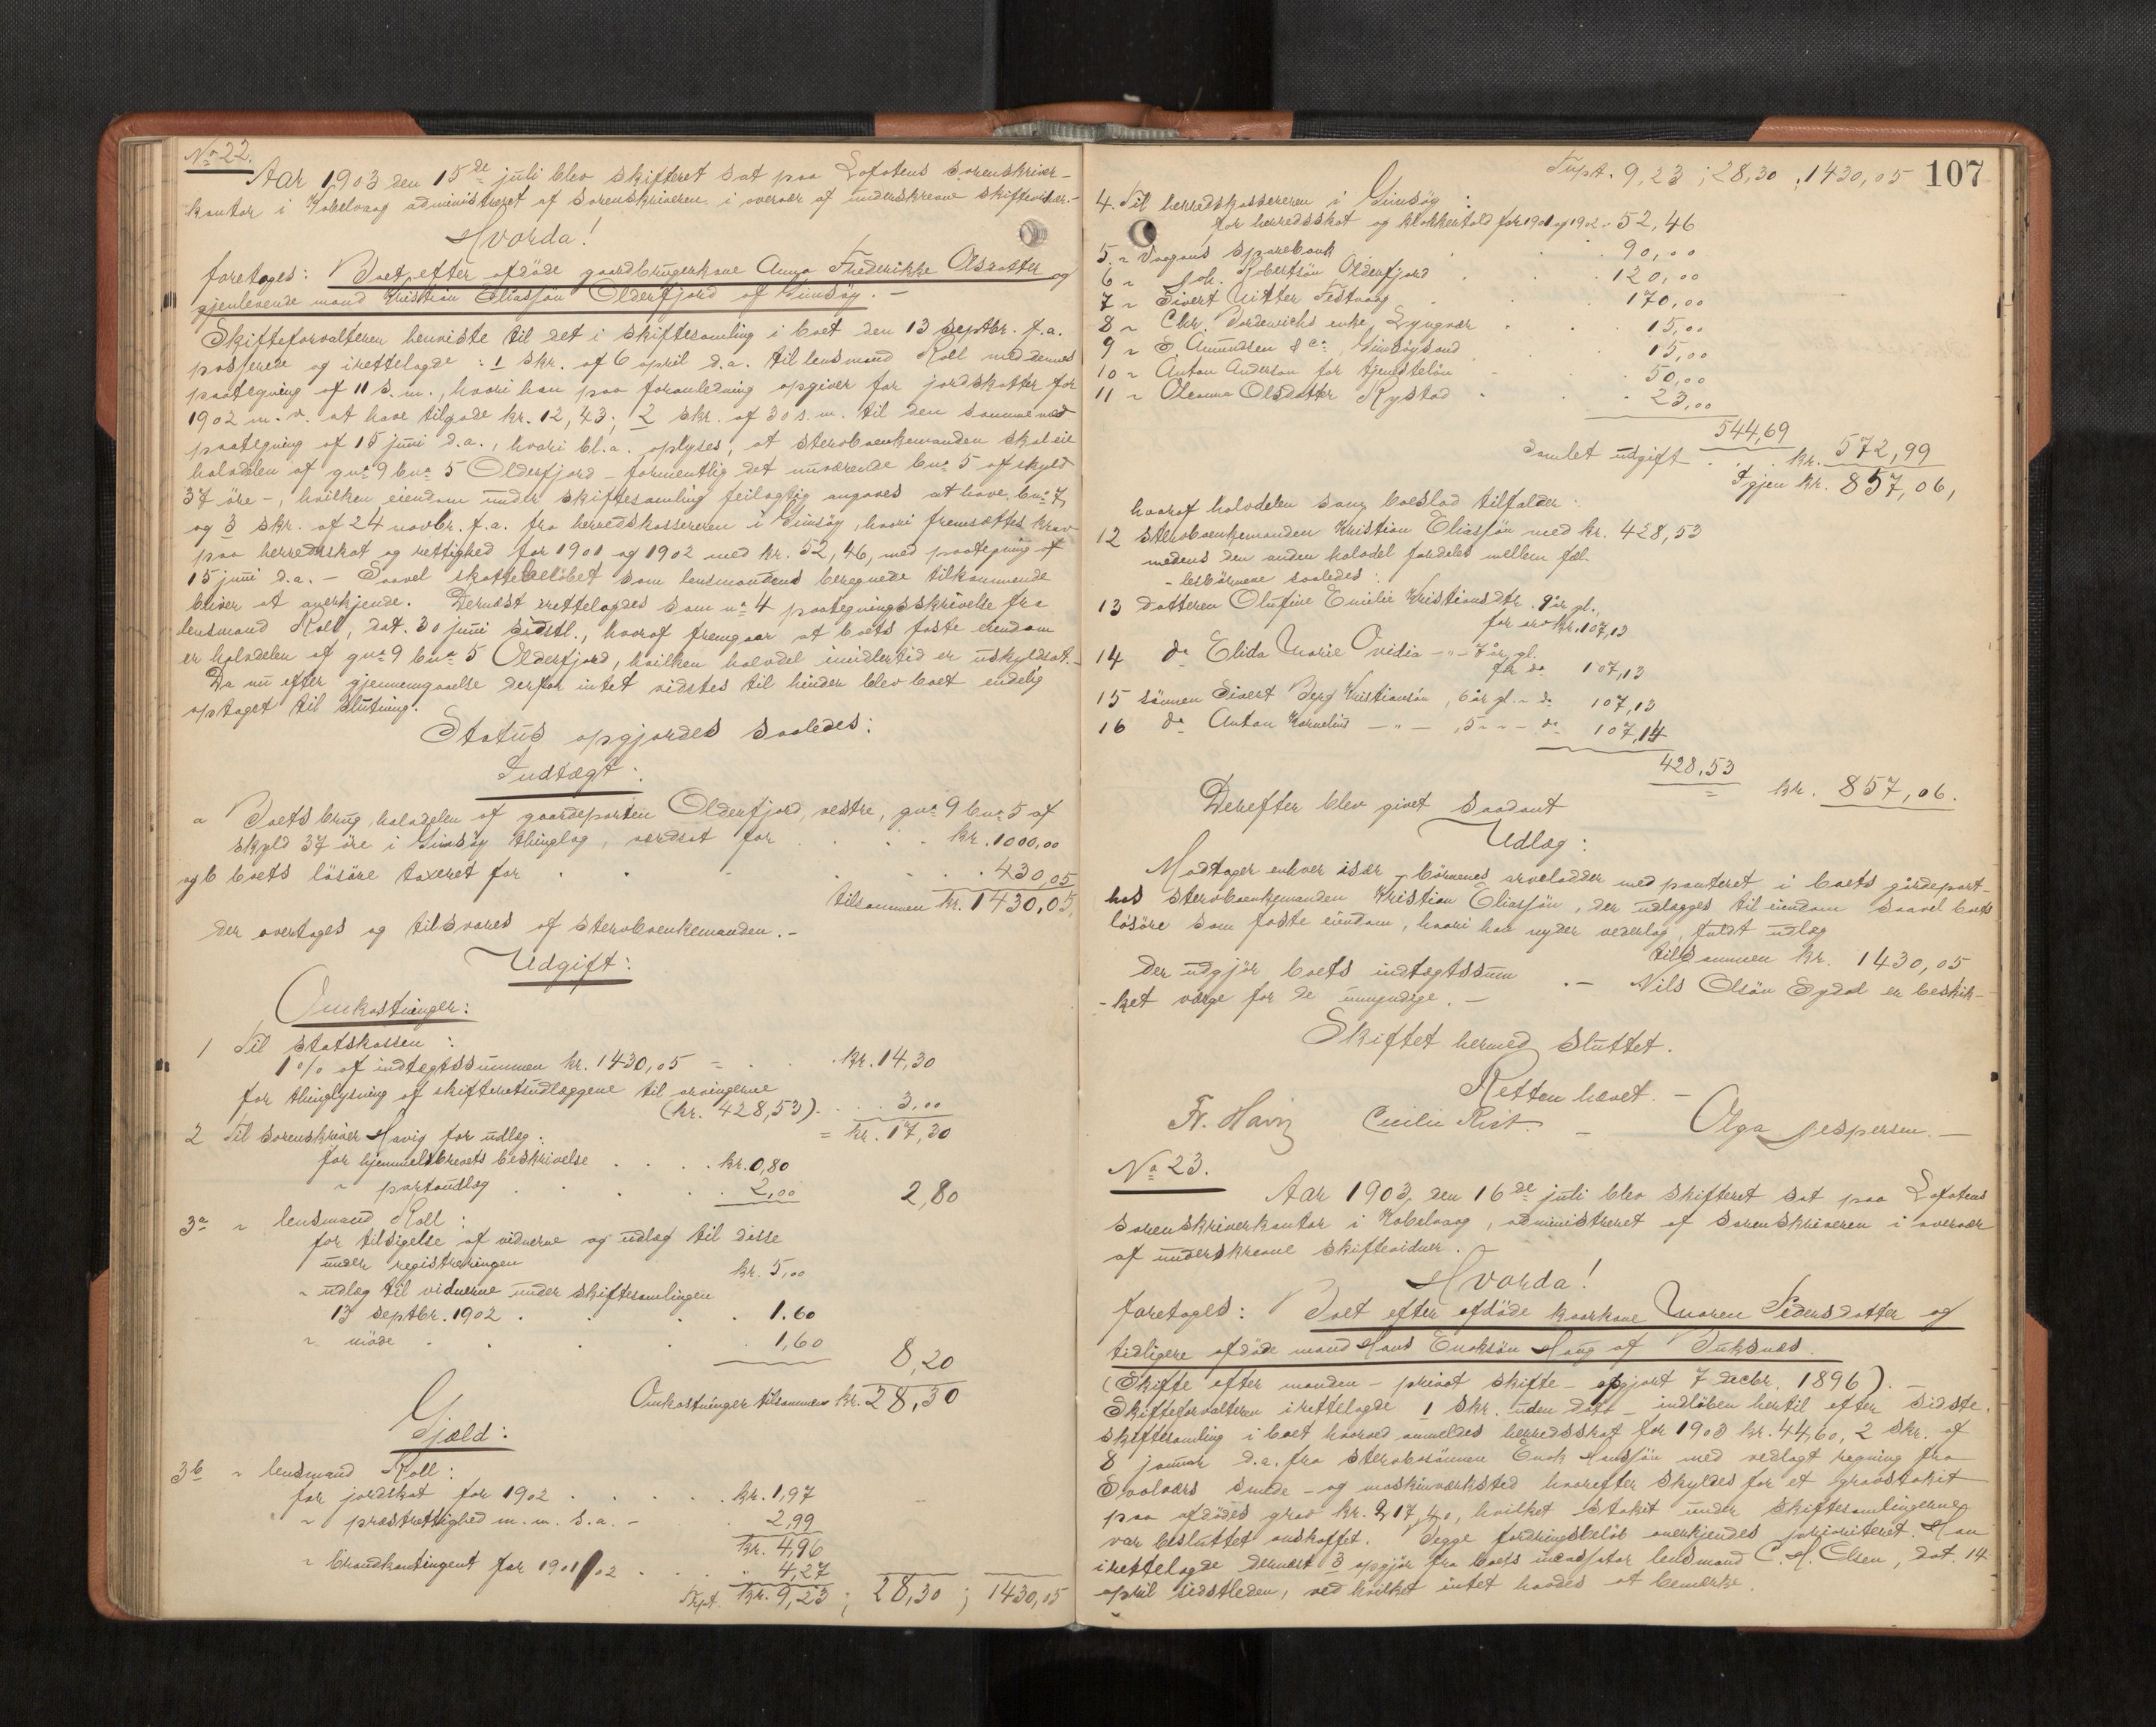 No 22.
Aar 1903 den 15de juli blev skifteret sat paa Lofotens sorenskriver-
kontor i Kabelvaag administreret af sorenskriveren i overvær af underskrevne skiftevidner.-
Hvorda!
foretoges: Boet efter afdöde gaardbrugerkone Anna Frederikke Olsdatter og
gjenlevende mand Kristian Eliassön Olderfjord af Gimsöy. -
Skifteforvalteren henviste til det i skiftesamling i boet den 13 septbr. f.a.
passerede og irettelagde: 1 skr. af 6 april d.a. til lensmand Roll med dennes
paategning af 11 s.m., hvori han paa foranledning opgiver for jordskatter for
1902 m.v. at have tilgode kr. 12,43; 2 skr. af 30 s.m. til den samme med
paategning af 15 juni d.a., hvori bl.a. oplyses, at sterboenkemanden skal eie
halvdelen af gno 9 bno 5 Olderfjord - formentlig det nuværende bno 5 af skyld
37 öre -, hvilken eiendom under skiftesamling feilagtig angaves at have bno 7,
og 3 skr. af 24 novbr. f.a. fra herredskassereren i Gimsöy, hvori fremsættes krav
paa herredsskat og rettighed for 1901 og 1902 med kr. 52,46, med paategning af
15 juni d.a. - Saavel skattebelöbet som lensmandens beregnede tilkommende
bliver at anerkjende. Dernæst irettelagdes som no 4 paategningsskrivelse fra
lensmand Roll, dat. 30 juni sidstl., hvoraf fremgaar at boets faste eiendom
er halvdelen af gno 9 bno 5 Olderfjord, hvilken halvdel imidlertid er uskyldsat.-
Da nu efter gjennemgaaelse derfor intet vidstes til hinder blev boet endelig
optaget til slutning.
Status opgjordes saaledes:
Indtægt:
a Boets brug, halvdelen af gaardeparten Olderfjord, vestre, gno 9 bno 5 af
skyld 37 öre i Gimsöy thinglag, værdsat for . . . kr. 1000,00
og b boets lösöre taxeret for . . . . 430,05
tilsammen kr. 1430,05.
der overtages og tilsvares af sterboenkemanden. -
Udgift:
Omkostninger:
1 Til statskassen:
1% af indtægtssummen kr. 1430,05 = . . kr. 14,30
for thinglysning af skifteretsudlæggene til arvingerne
(kr. 428,53) . . . 3,00
= kr. 17,30
2 Til sorenskriver Havig for udlæg:
for hjemmelsbrevets beskrivelse . . . . kr. 0,80
" portoudlæg . . . . 2,00 2,80
3a " lensmand Roll:
for tilsigelse af vidnerne og udlæg til disse
under registreringen kr. 5,00
" udlæg til vidnerne under skiftesamlingen
13 septbr. 1902 . . . . 1.60
" möde . . . . 1,60 8,20
Omkostninger tilsammen kr. 28,30
Gjæld:
3b " lensmand Roll:
for jordskat for 1902 . . . . kr. 1,97
" præstrettighed m.m. s.a. - 2,99
kr. 4,96
" brandkontingent for 1901/02 . . . 4,27
Trpt. kr. 9,23; 28,30; 1430,05
Trspt. 9,23; 28,30; 1430,05 107
4. Til herredskassereren i Gimsöy:
for herredsskat og klokkertold for 1901 og 1902 . . 52,46
5. " Vaagans sparebank . . 90,00
6 " Joh. Robertsön Olderfjord . . 120,00
7 " Sivert Festvaag . . 170,00
8 " Chr. enke, Lyngvær . . 15,00
9 " S. Amundsen & Co, Gimsöysand 15,00
10 " Anton Anderson for tjenestelön 50,00
11 " Oleanna Olsdatter Rystad . . 23,00
544,69
Samlet udgift . . kr. 572,99
Igjen kr. 857,06,
hvoraf halvdelen som boeslod tilfalder:
12 sterboenkemanden Kristian Eliassön med kr. 428,53
medens den anden halvdel fordeles mellem fæl-
- lesbörnene saaledes:
13 datteren Olufine Emilie Kristiansdtr. 9 år gl.,
for arv kr. 107,13
14 do Elida Marie Ovidia -"- 7 år gl.
for do 107,13
15 sönnen Sivert Berg Kristiansön, 6 år gl. " do 107,13
16 do Anton Kornelius -"- , 5 - " - do 107,14
428,53
= kr. 857,06.
Derefter blev givet saadant
Udlæg:
Modtager enhver især, börnenes arvelodder med panteret i boets gårdepart-
hos sterboenkemanden Kristian Eliassön, der udlægges til eiendom saavel boets
lösöre som faste eiendom, hvori han nyder vederlag, fuldt udlæg
tilsammen kr. 1430,05
der udgjör boets indtægtssum . - Nils Olsön Sydal er beskik-
- ket værge for de umyndige. -
Skiftet hermed sluttet.
Retten hævet. -
Fr. Havig Cecilie Rist. - Olga Jespersen. -
No 23.
Aar 1903, den 16de juli blev skifteret sat paa Lofotens
sorenskriverkontor i Kabelvaag, administreret af sorenskriveren i overvær
af underskrevne skiftevidner.
Hvorda!
foretoges: Boet efter afdöde kaarkone Maren Pedersdatter og
tidligere afdöde mand Hans Enoksön Haug af Buksnæs.
(Skifte efter manden - privat skifte - opgjort 7 decbr. 1896). -
Skifteforvalteren irettelagde 1 skr. uden dato - indlöben hertil efter sidste
skiftesamling i boet hvorved anmeldes herredsskat for 1903 kr. 44,60, 2 skr. af
8 januar d.a. fra sterbosönnen Enok Hanssön med vedlagt regning fra
Svolværs smede- og maskinværksted hvorefter skyldes for et gravstakit
paa afdödes grav kr. 217,40, hvilket stakit under skiftesamlingerne
var besluttet anskaffet. Begge fordringsbelöb anerkjendes prioriteret. Han
irettelagde dernæst 3 opgjör fra boets incassator lensmand C. A. Olsen, dat. 14
april sidstleden, ved hvilket intet havdes at bemerke.